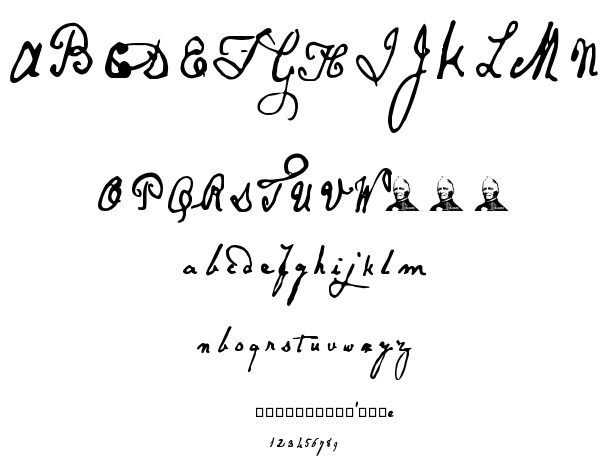 A B C D E F G H I J K L M N
O P Q R S T U V W
a b c d e f g h i j k l m
n b o q r s t u v w x y z
□□□□□□□□□□'□□□e
1 2 3 4 5 6 7 8 9